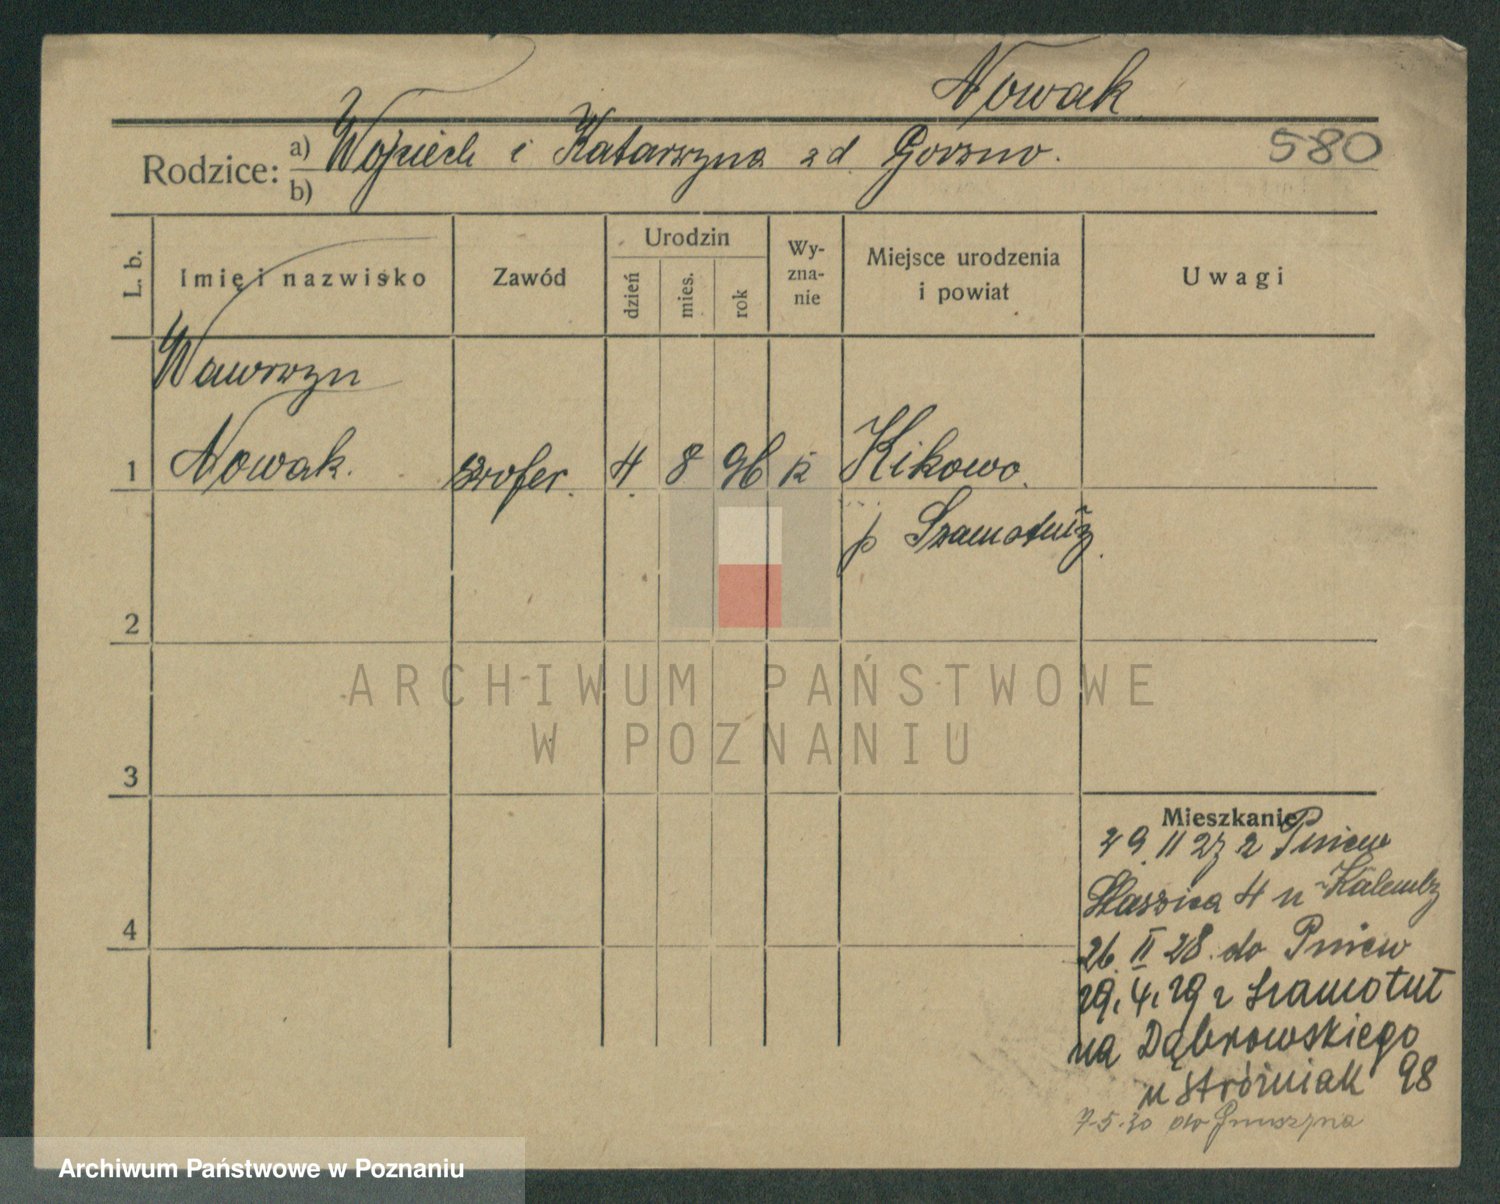 Nowak
580
Rodzice: a) Wojciech i Katarzyna zd. Gorzno.
b)
L. b.
Imię i nazwisko
Zawód
Urodzin
dzień
mies.
rok
Wy-
zna-
nie
Miejsce urodzenia
i powiat
Uwagi
Wawrzyn
1 Nowak. szofer. 4 8 96 k Kikowo.
p Szamotuły.
2
ARCHIWUM PAŃSTWOWE
W POZNANIU
3
Mieszkanie
29. II 27 z Pniew
Staszica 4 u Kalemby
4
26. II 28. do Pniew
29. 4. 29 z Szamotuł
na Dąbrowskiego
u Stróżniak 98
7.5.30 do
Archiwum Państwowe w Poznaniu